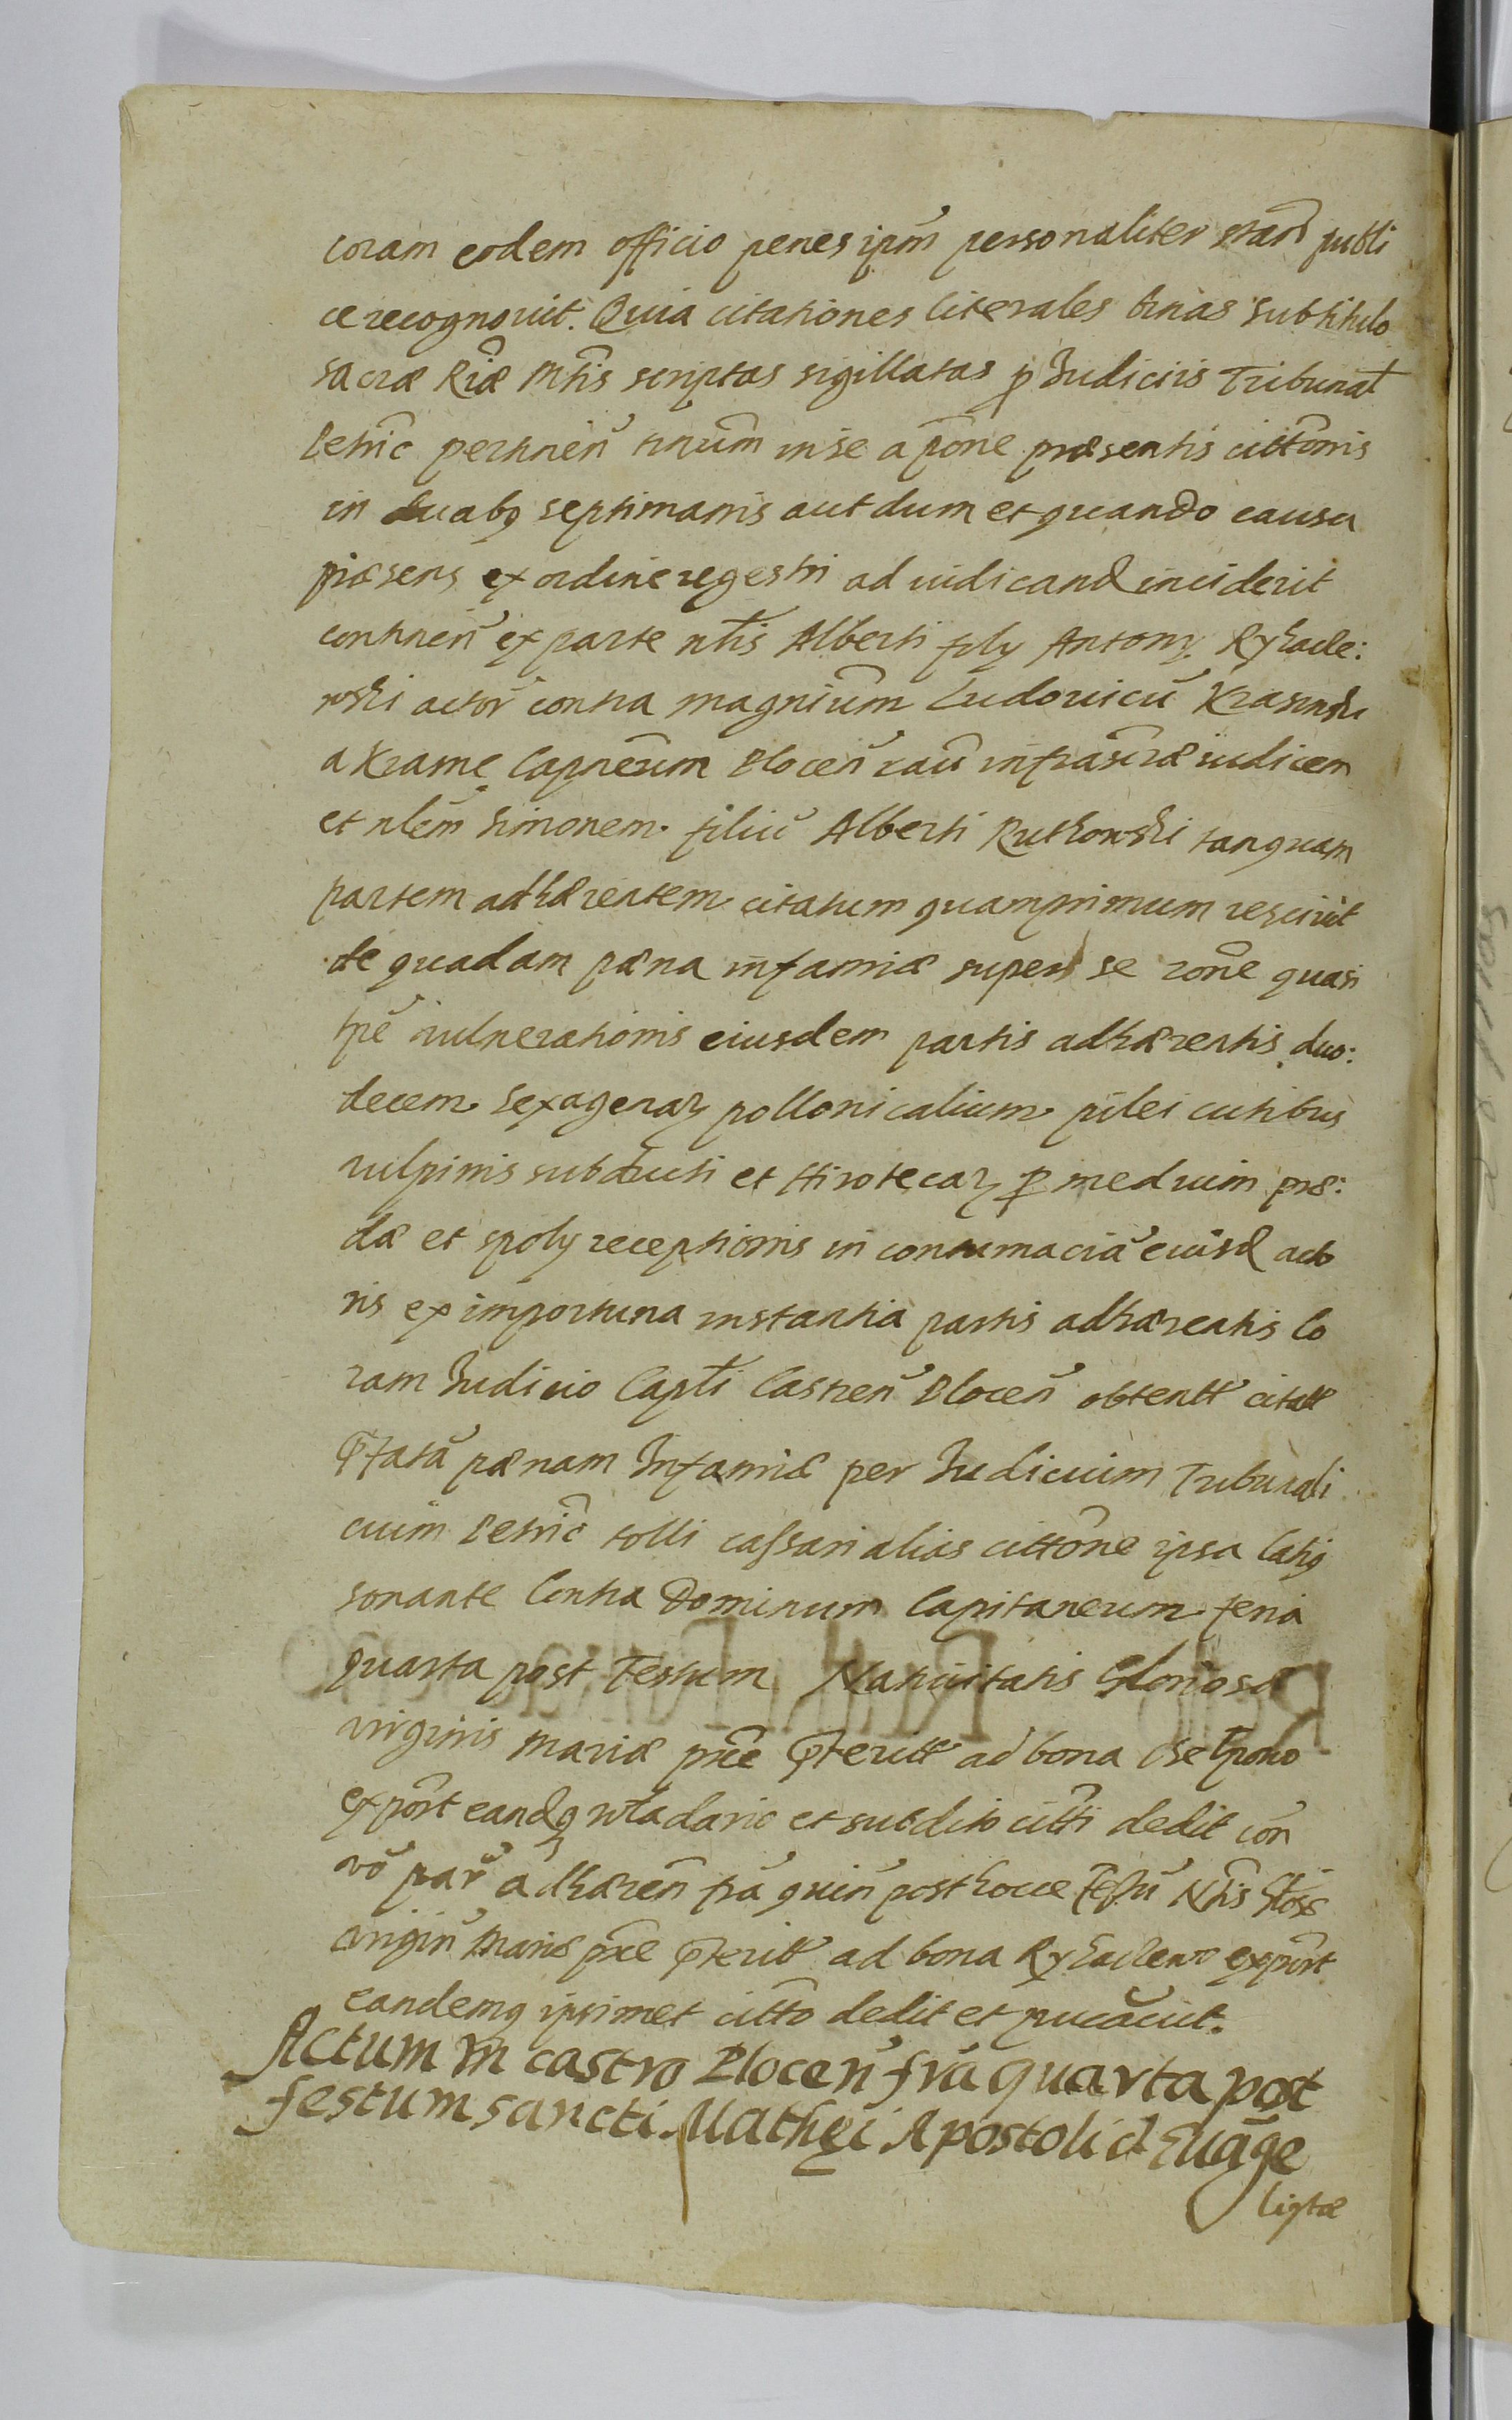 coram eodem officio penes ipm̃ personaliter stañ publi
ce recognovit. Quia citationes literales binas sub titulo
sacræ Riæ Mtis scriptas sigillatas p Judiciis Tribunal
Petric pertinen̄ tinũm in se a pone præsentis cittonis
in duabq septimanis aut dum et quando causa
præsens ex ordine regestri ad iudicand inciderit
continen̄ ex parte nblis Alberti fily Antony Rykacle:
wski actor̄ contra magnicum Ludovicū Krasinski
a Krasne Capneum Plocen̄ cau infrascræ iudicem
et nblem Simonem filiū Alberti Rutkowski tanquam
partem adhærentem citatum quamprimum rescivit
de quadam pæna infamiæ super se rone quasi
tpe vulnerationis eiusdem partis adhærentis duo:
decem sexagenar pollonicalium pilei cutibus
vulpinis subducti et Hirotecar p medium præ:
dæ et spoly receptionis in contumaciā eiusd acto
ris ex importuna instantia partis adhærentis Co
ram Judicio Capli Castren̄ Plocen̄ obtent citatt
pfatā pænam Infamiæ per Judicium Tribunali
cium Petric tolli cassari alias cittone ipsa latiq
sonante Contra Dominum Capitaneum feria
quarta post Festum Nativitatis Gloriosæ
virginis Mariæ pxe pteritt ad bona
export eandq wladario et subdito citti dedit con
vo par̄ adhæren̄ fra quin̄ post hocce festū Ntis Glosæ
virgin̄ Mariæ pxe pterit ad bona Rykaclewo export
eandemq ipsimet citto dedit et pucavit.
Actum in castro Plocen̄ fra quarta post
festum sancti Mathęi Apostoli et Euāge
listæ